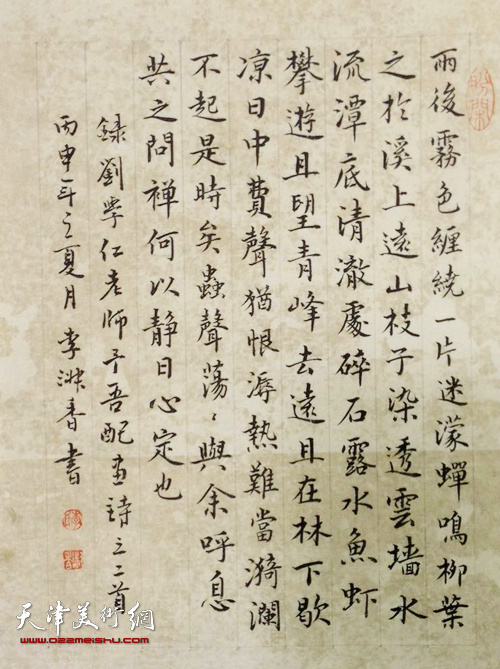 雨後霧色纏繞一片迷濛蟬鳴柳葉
之於溪上遠山枝子染透雲墻水
流潭底清澈處碎石露水魚虾
攀遊且望青峰去遠且在林下歇
凉日中費聲猶恨溽熱難當漪瀾
不起是時矣蟲聲蕩々與余呼息
共之問禅何以静日心定也
録劉學仁老師予吾配画詩之二首
丙申年之夏月李淑香書
天津美術網
www.022meishu.com